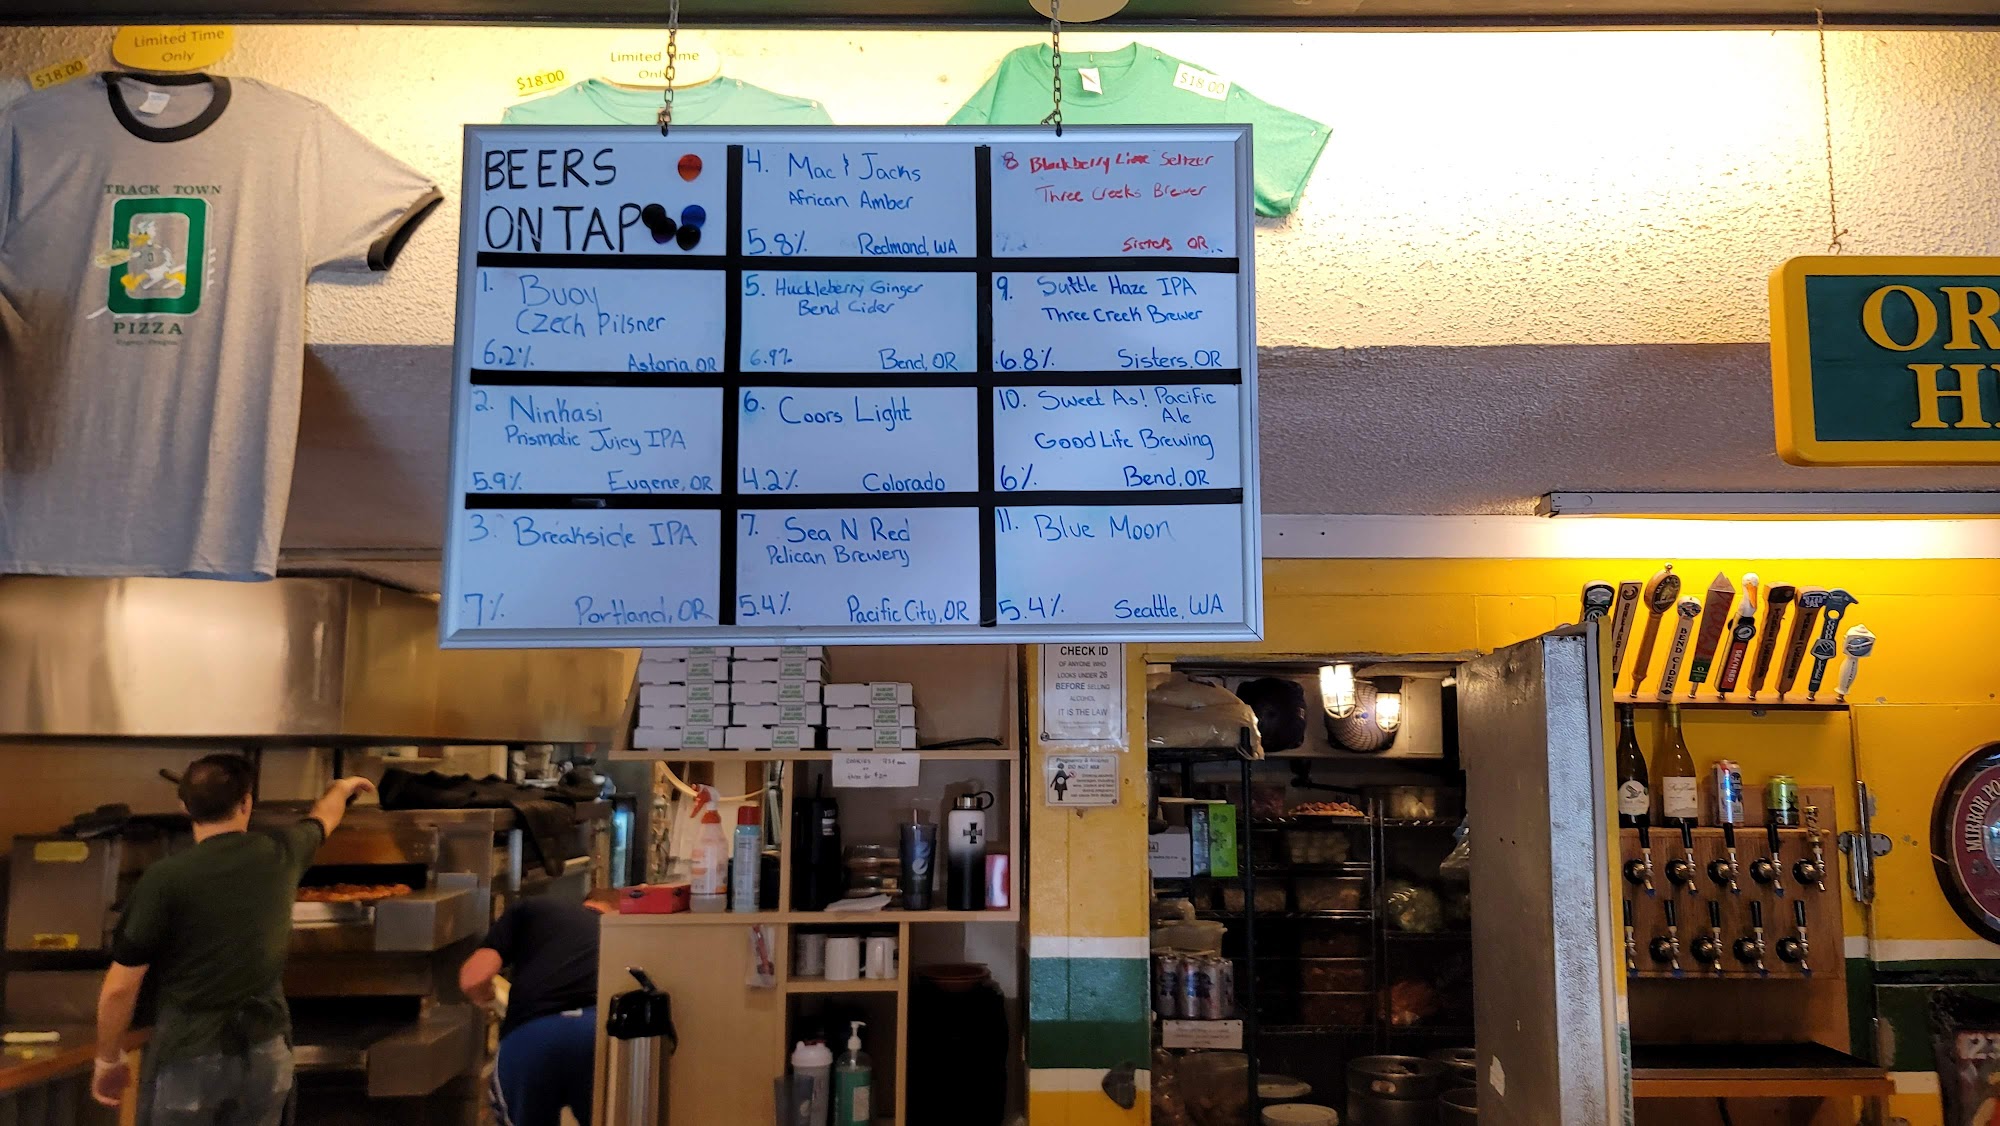 Limited Time
Only
$18.00
TRACK TOWN
PIZZA
Eugene, Oregon
Limited Time
Only
$18.00
$18.00
BEERS
ON TAP
1. Buoy
Czech Pilsner
6.2% Astoria, OR
2. Ninkasi
Prismatic Juicy IPA
5.9% Eugene, OR
3. Breakside IPA
7% Portland, OR
4. Mac & Jacks
African Amber
5.8% Redmond, WA
5. Huckleberry Ginger
Bend Cider
6.9% Bend, OR
6. Coors Light
4.2% Colorado
7. Sea N Red
Pelican Brewery
5.4% Pacific City, OR
8 Blackberry Lime Seltzer
Three Creeks Brewer
Sisters OR.
9. Suttle Haze IPA
Three Creek Brewer
6.8% Sisters, OR
10. Sweet As! Pacific
Ale
Good Life Brewing
6% Bend, OR
11. Blue Moon
5.4% Seattle, WA
OR
H
CHECK ID
OF ANYONE WHO
LOOKS UNDER 26
BEFORE SELLING
ALCOHOL
IT IS THE LAW
Pregnancy & Alcohol
DO NOT MIX
COOKIES
BEND CIDER
MIRROR PO
123